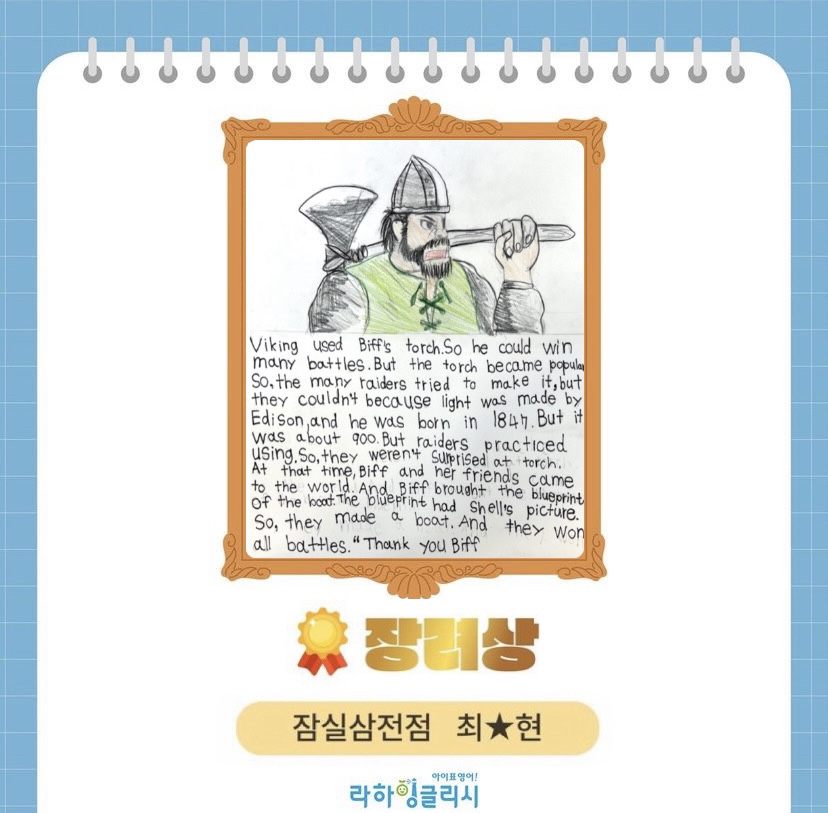 Viking used Biff's torch.So he could win
many battles.But the torch became popular
So,the many raiders tried to make it,but
they couldn't because light was made by
Edison,and he was born in 1847.But it
was about 900.But raiders practiced
using.So,they weren't surprised at torch.
At that time,Biff and her friends came
to the world.And Biff brought the blueprint
of the boat.The blueprint had Shell's picture.
So, they made a boat.And they won
all battles."Thank you Biff
장려상
잠실삼전점 최★현
아이표영어!
라하잉글리시